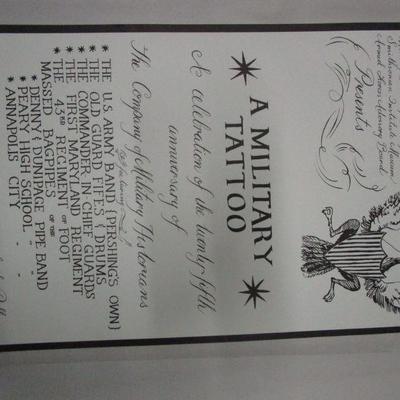 Smithsonian Institute Museum
Armed Forces Advisory Board
Presents
A MILITARY
TATTOO
A celebration of the twenty fifth
anniversary of
The Company of Military Historians
THE U.S. ARMY BAND {PERSHING'S OWN}
THE OLD GUARD FIFES & DRUMS
THE COMMANDER-IN-CHIEF GUARDS
THE FIRST MARYLAND REGIMENT
THE 43RD REGIMENT OF FOOT
MASSED BAGPIPES OF THE
DENNY & DUNIPAGE PIPE BAND
PEARY HIGH SCHOOL - -
ANNAPOLIS CITY